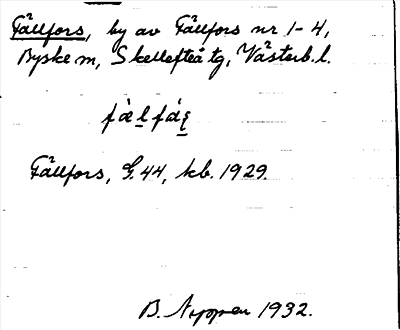 Fällfors, by av Fällfors nr 1-4,
Byske sn, Skellefteå tg, Västerb. l.
Fällfors, G. 44, kb. 1929.
B. 1932.